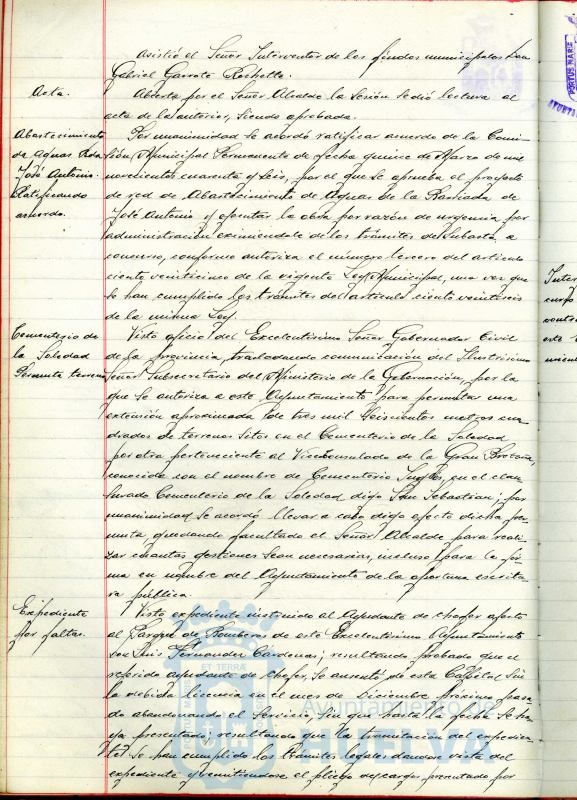 Asistió el Señor Interventor de los fondos municipales Don
Gabriel Garrote Rochette.
Acta.
Abierta por el Señor Alcalde la Sesión se dió lectura al
acta de la anterior, siendo aprobada.
Abastecimiento
de aguas Rda.
José Antonio.
Ratificando
acuerdo.
Por unanimidad se acordó ratificar acuerdo de la Comi-
sión Municipal Permanente de fecha quince de Marzo de mil
novecientos cuarenta y seis, por el que se aprueba el proyecto
de red de Abastecimiento de Aguas de la Barriada de
José Antonio y ejecutar la obra por razón de urgencia por
administración eximiéndole de los trámites de Subasta o
concurso, conforme autoriza el número tercero del artículo
ciento veinticinco de la vigente Ley Municipal, una vez que
se han cumplido los trámites del artículo ciento veintiseis
de la misma Ley.
Cementerio de
la Soledad
Permuta terreno
Visto oficio del Excelentísimo Señor Gobernador Civil
de la provincia, trasladando comunicación del Ilustrísimo
Señor Subsecretario del Ministerio de la Gobernación, por la
que se autoriza a este Ayuntamiento para permutar una
extensión aproximada de tres mil seiscientos metros cua-
drados de terrenos sitos en el Cementerio de la Soledad
por otra perteneciente al Viceconsulado de la Gran Bretaña,
conocida con el nombre de Cementerio Inglés, en el clau-
surado Cementerio de la Soledad digo San Sebastian; por
unanimidad se acordó llevar a cabo digo efecto dicha per-
muta, quedando facultado el Señor Alcalde para reali-
zar cuantas gestiones sean necesarias, incluso para la fir-
ma en nombre del Ayuntamiento de la oportuna escritu-
ra pública.
Expediente
por faltas.
Visto expediente instruido al Ayudante de chofer afecto
al Parque de Bomberos de este Excelentísimo Ayuntamiento
Don Luis Fernandez Cardenas; resultando probado que el
referido ayudante de chofer, se ausentó de esta Capital sin
la debida licencia en el mes de Diciembre próximo pasa-
do abandonando el servicio, sin que hasta la fecha se ha-
ya presentado; resultando que la tramitación del expedien-
te se han cumplido los trámites legales dandose vista del
expediente y remitiendose el pliego de cargos, presentado por
Ayuntamiento de
HUELVA